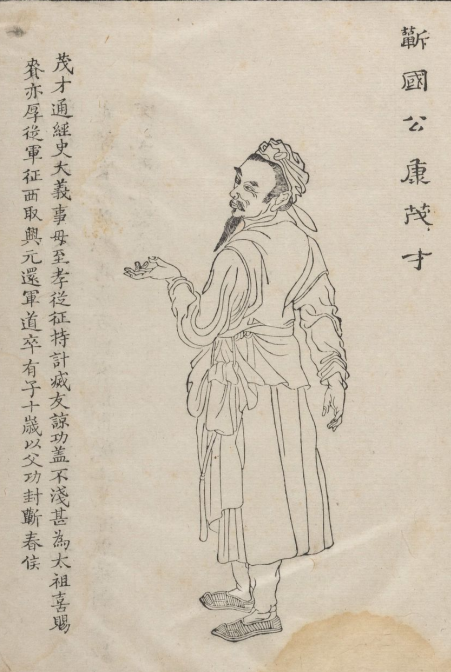 蘄國公康茂才
茂才通經史大義事母至孝從征持計㓕友諒功盖不淺甚為太祖喜賜
賚亦厚從軍征西取興元還軍道卒有子十歲以父功封蘄春侯